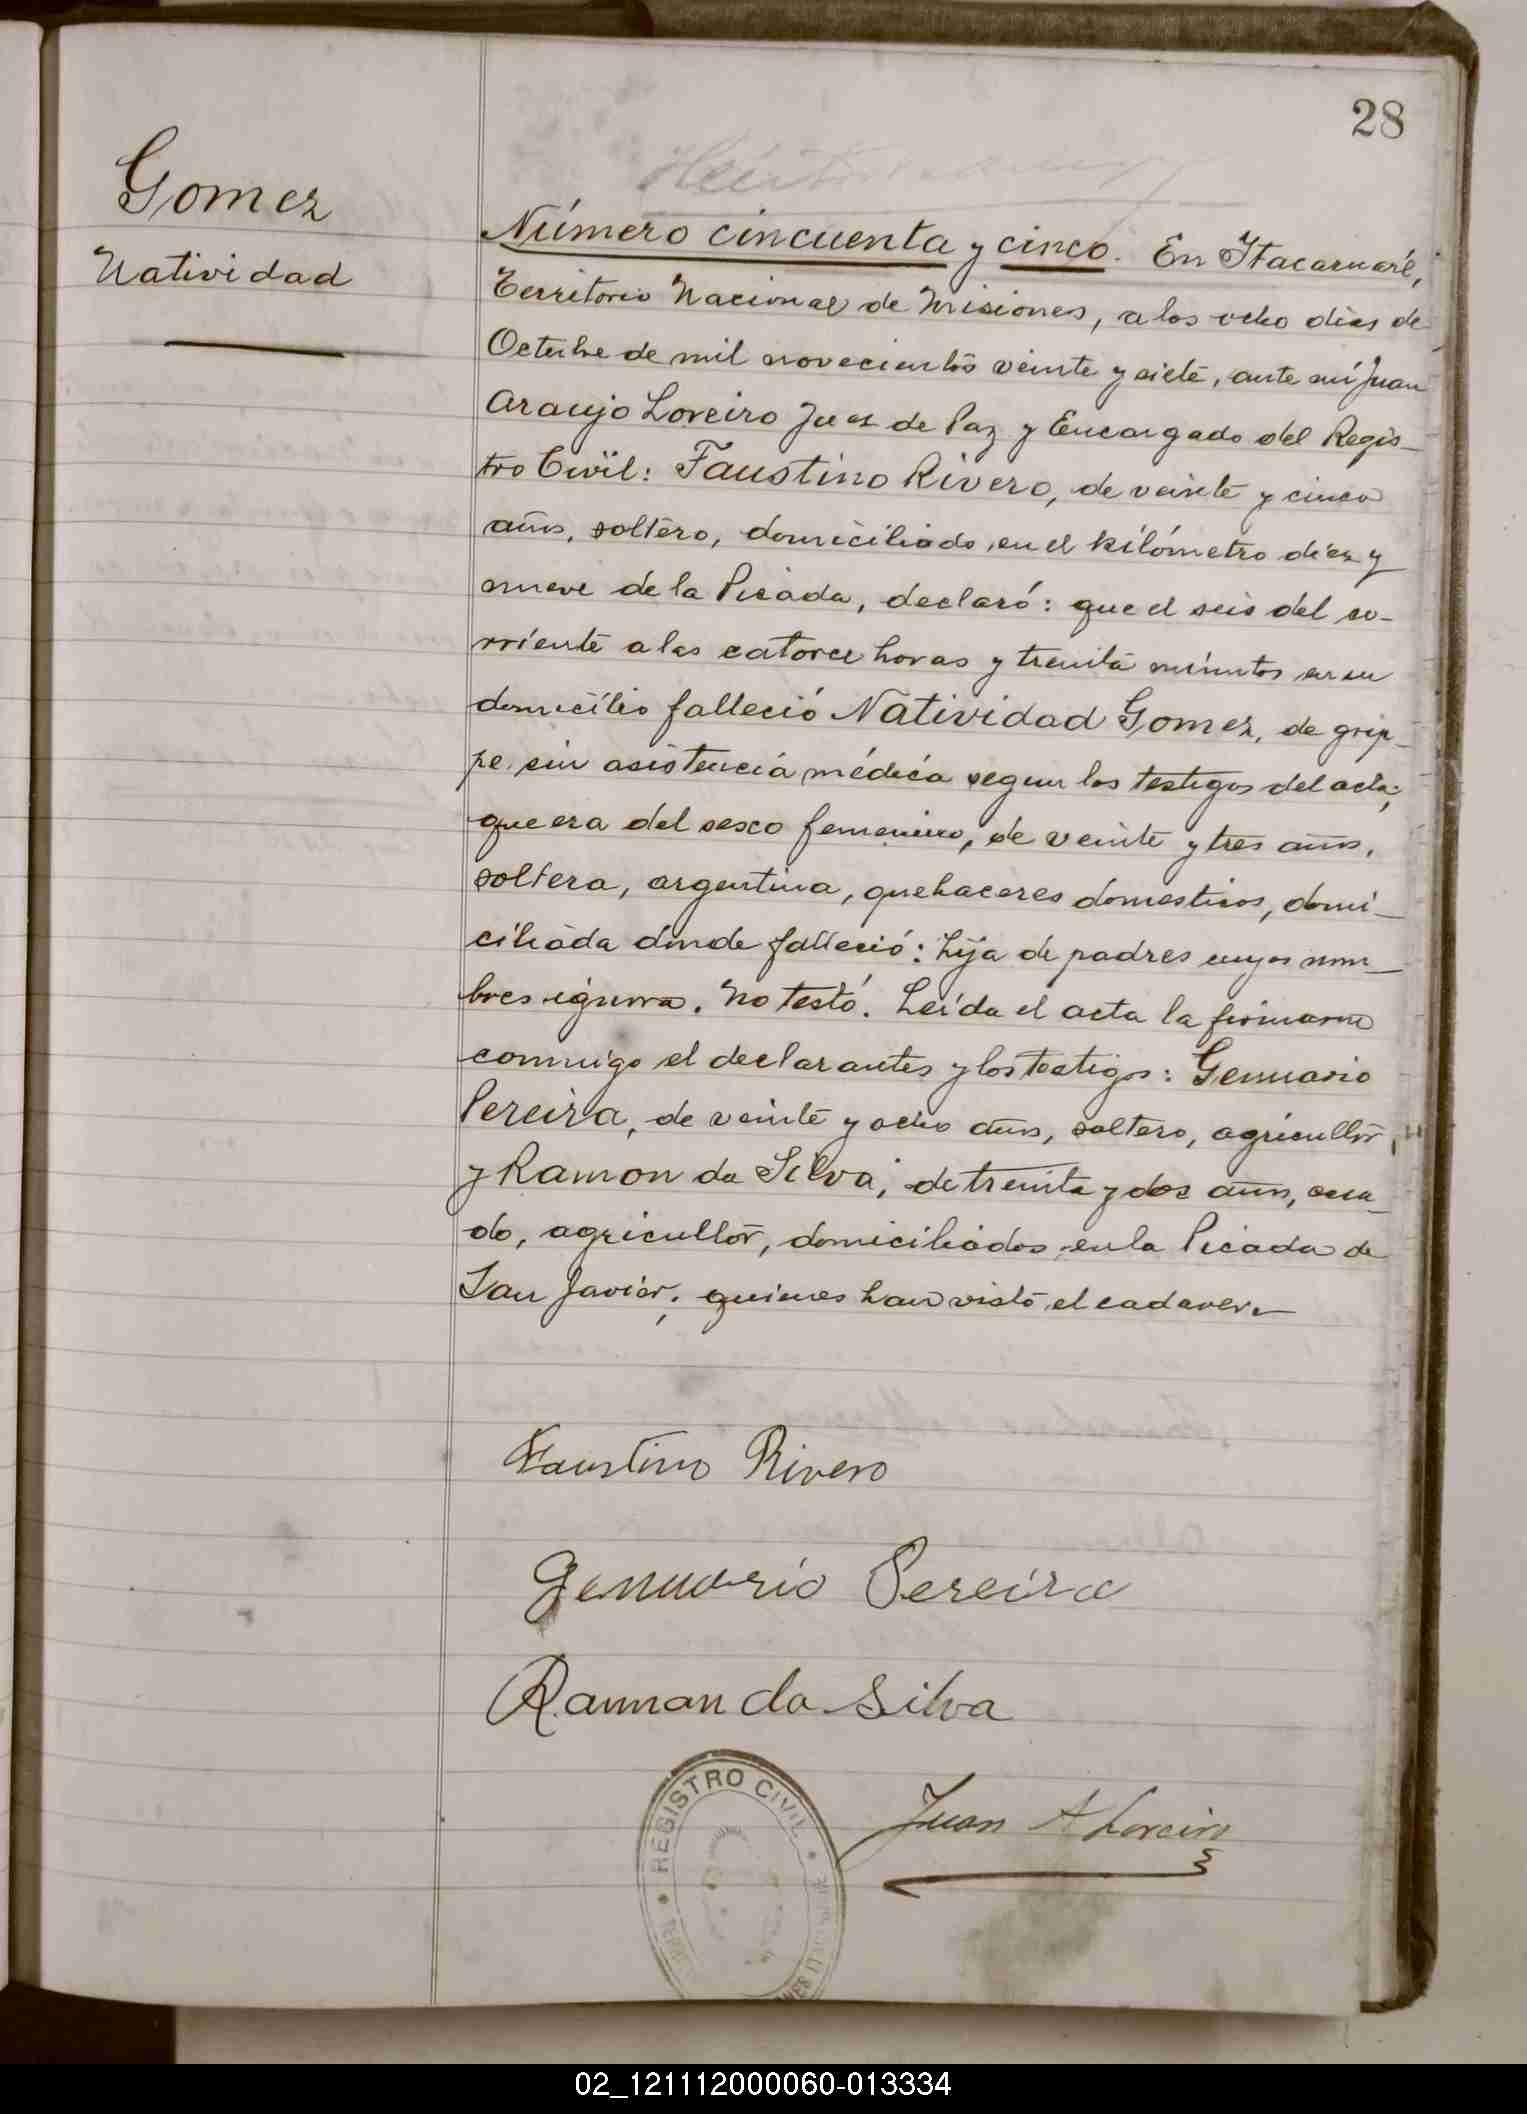 28
Gomez
Natividad
Número cincuenta y cinco. En Itacaruaré,
Territorio Nacional de Misiones, a los ocho dias de
Octubre de mil novecientos veinte y siete, ante mí Juan
Araujo Loreiro Juez de Paz y Encargado del Regis-
tro Civil: Faustino Rivero, de veinte y cinco
años, soltero, domiciliado en el kilómetro diez y
nueve de la Picada, declaró: que el seis del co-
rriente a las catorce horas y treinta minutos en su
domicilio falleció Natividad Gomez, de grip-
pe, sin asistencia médica segun los testigos del acta;
que era del sexo femenino, de veinte y tres años,
soltera, argentina, quehaceres domesticos, domi-
ciliada donde falleció: hija de padres cuyos nom-
bres ignora. No testó. Leída el acta la firmaron
conmigo el declarantes y los testigos: Genuario
Pereira, de veinte y ocho años, soltero, agricultor,
y Ramon da Silva, de treinta y dos años, casa-
do, agricultor, domiciliados en la Picada de
San Javier; quienes han visto el cadaver.
Faustino Rivero
Genuario Pereira
Ramon da Silva
Juan A Loreiro
REGISTRO CIVIL
02_121112000060-013334